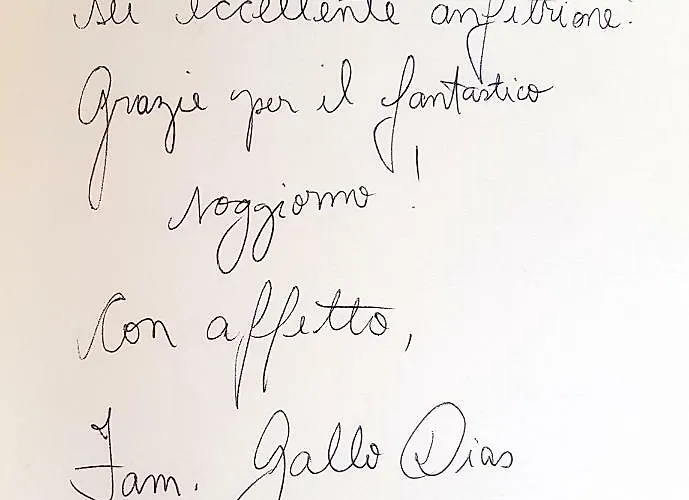 sei eccellente anfitrione.
Grazie per il fantastico
soggiorno!
Con affetto,
Fam. Gallo Dias